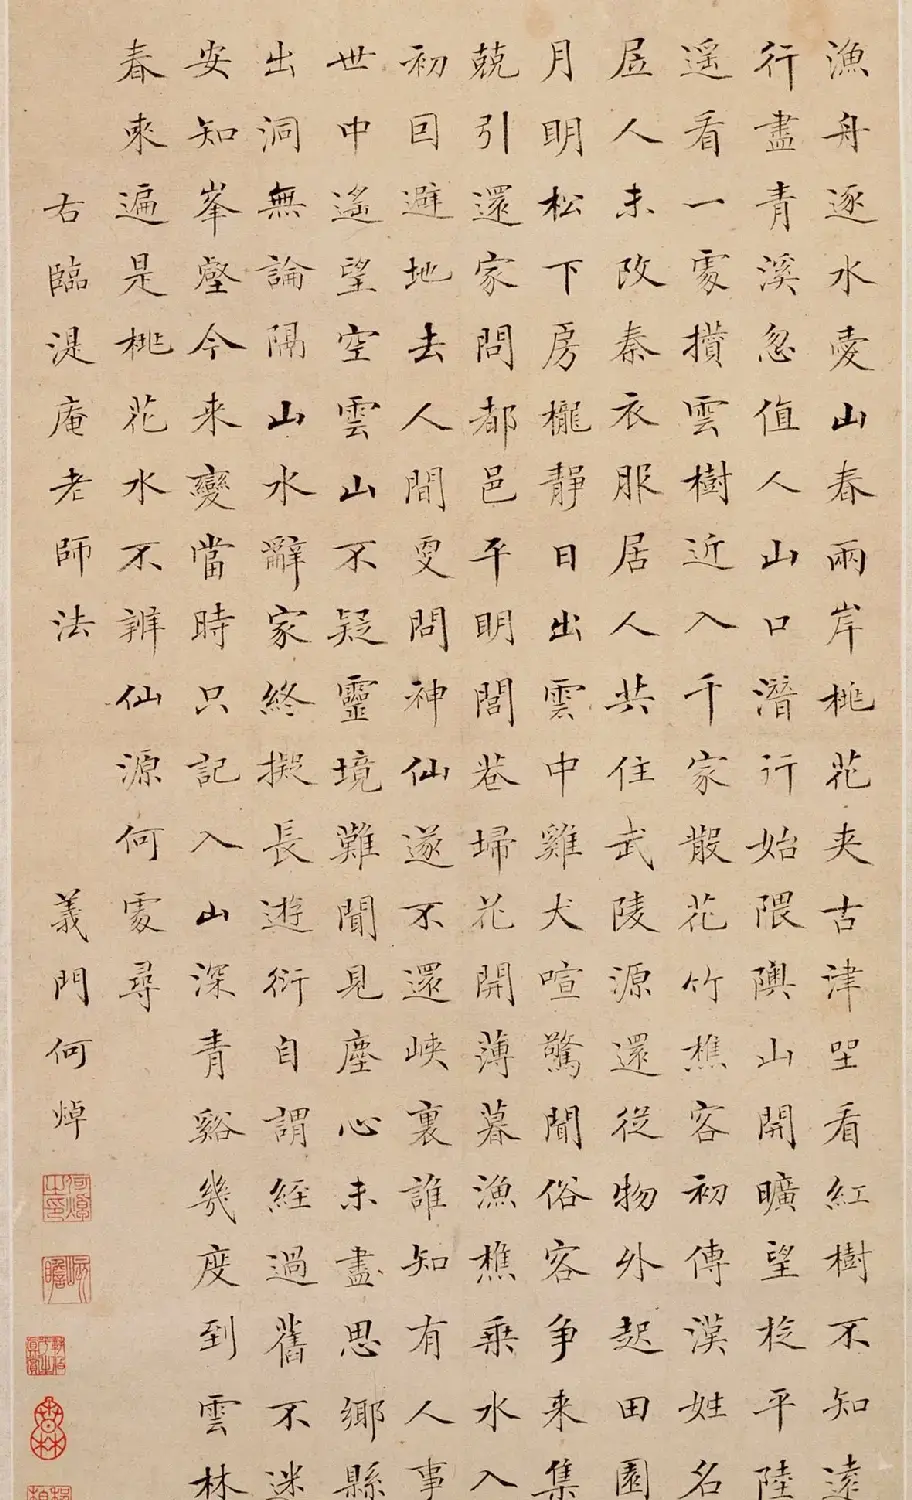 漁舟逐水愛山春兩岸桃花夾古津坐看紅樹不知遠
行盡青溪忽值人山口潛行始隈隩山開曠望旋平陸
遥看一處攢雲樹近入千家散花竹樵客初傳漢姓名
居人未改秦衣服居人共住武陵源還從物外起田園
月明松下房櫳靜日出雲中雞犬喧驚聞俗客争来集
兢引還家問都邑平明閭巷埽花開薄暮漁樵乘水入
初回避地去人間更問神仙遂不還峽裏誰知有人事
世中遙望空雲山不疑靈境難聞見塵心未盡思鄉縣
出洞無論隔山水辭家終擬長遊衍自謂經過舊不迷
安知峯壑今来變當時只記入山深青谿幾度到雲林
春來遍是桃花水不辨仙源何處尋
右臨湜庵老師法 義門何焯
何焯之印
屺瞻